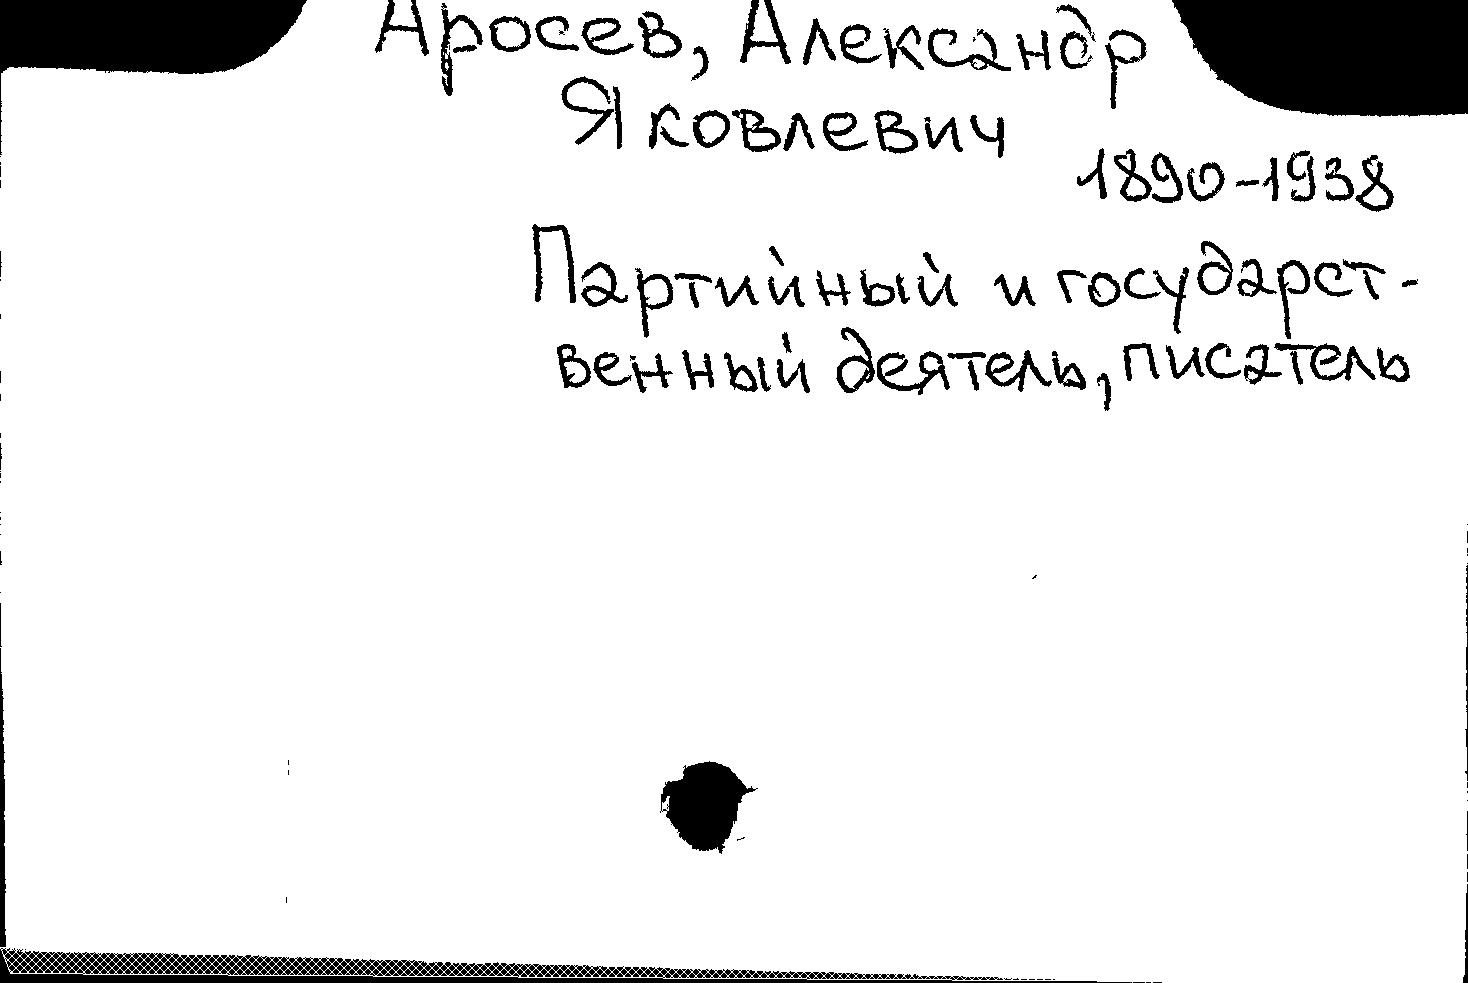 Аросев, Александр
Яковлевич
1890-1938
Партийный и государст-
венный деятель, писатель